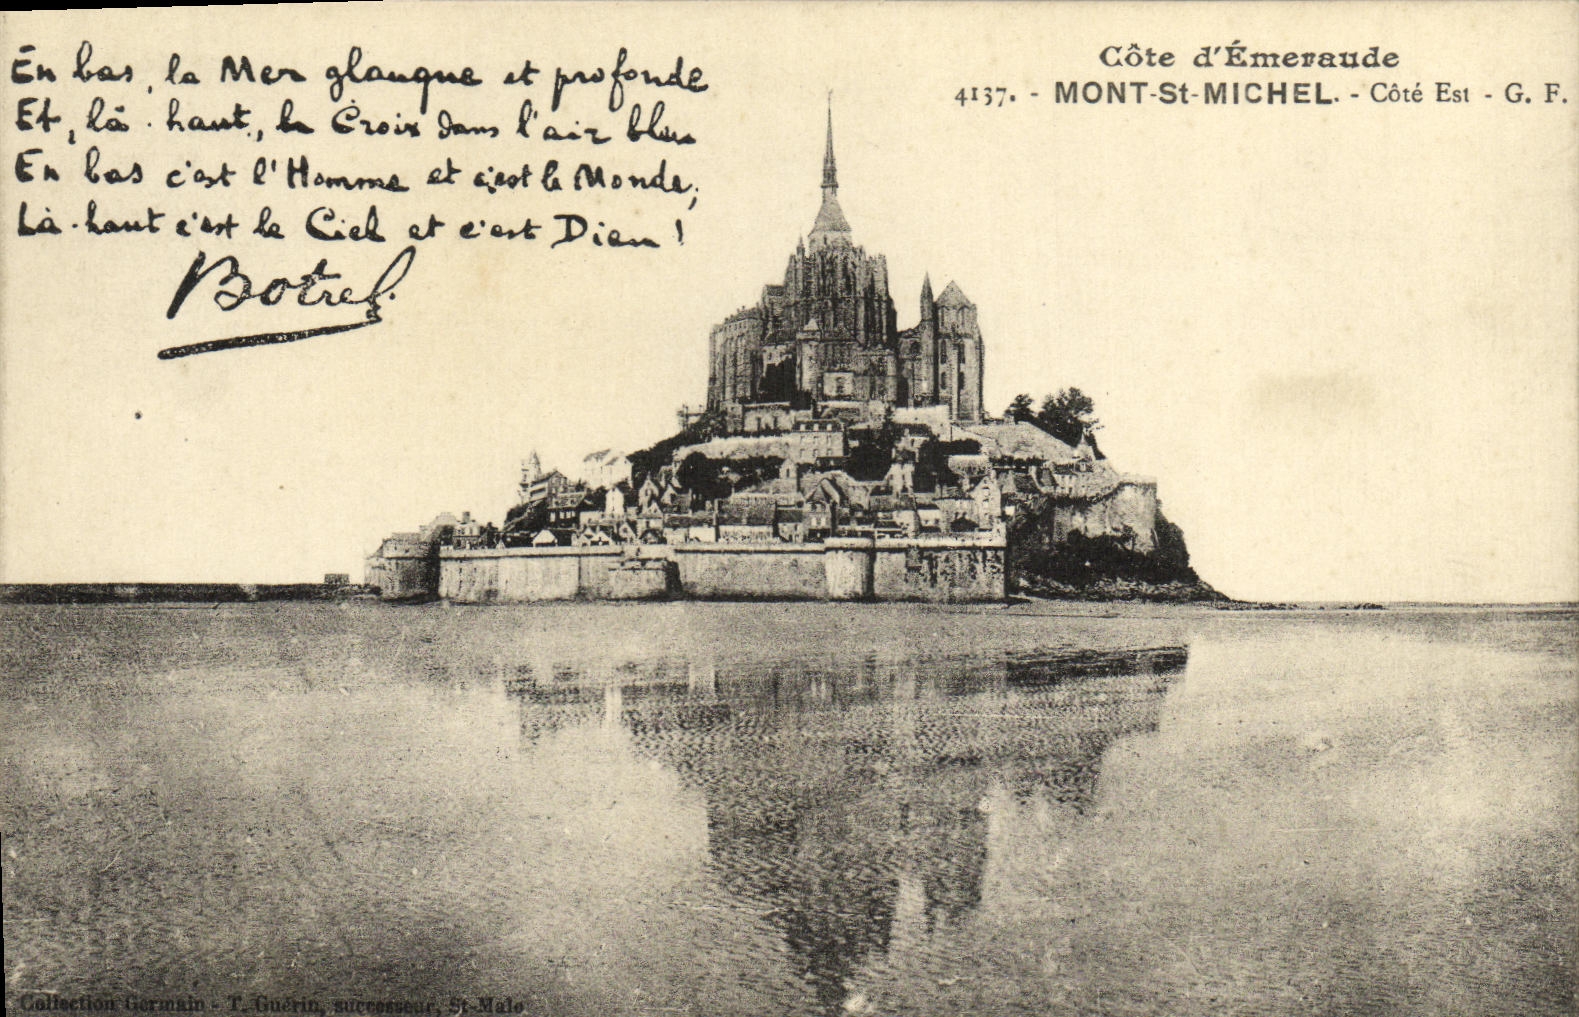 En bas, la Mer glauque et profonde
Et, là-haut, la Croix dans l'air bleu
En bas c'est l'Homme et c'est le Monde;
Là-haut c'est le Ciel et c'est Dieu !
Botrel.
Côte d'Émeraude
4137. - MONT-St-MICHEL. - Côté Est - G. F.
Collection Germain - T. Guérin, successeur, St-Malo